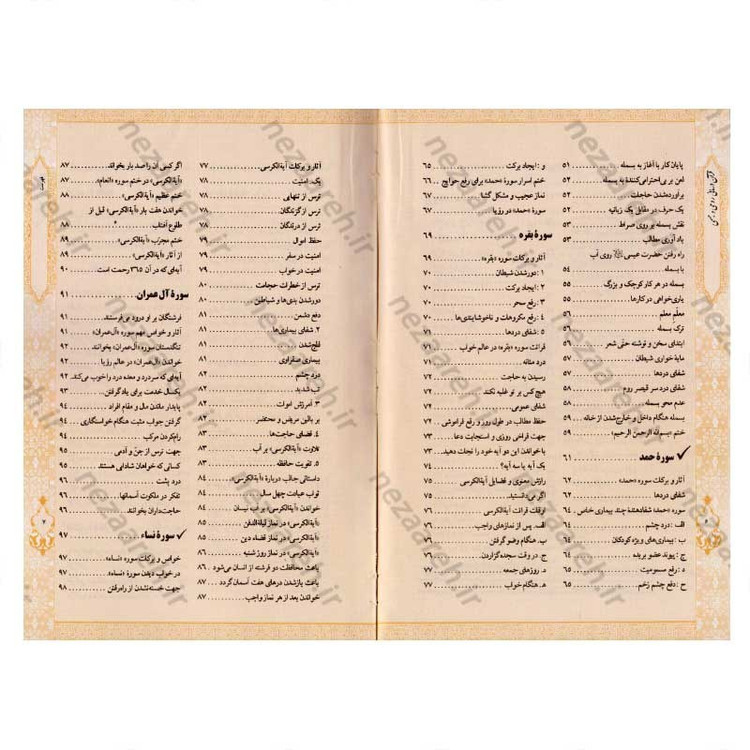 پایان کار با آغاز به بسمله ..... ۵۱
امن بر بی‌احترامی‌کنندهٔ به بسمله ..... ۵۲
برآورده‌شدن حاجات ..... ۵۲
یک حرف در مقابل یک زبانیه ..... ۵۲
نقش بسمله بر روی صراط ..... ۵۳
یادآوری مطالب ..... ۵۳
راه رفتن حضرت عیسی روی آب
با بسمله ..... ۵۴
بسمله در هر کار کوچک و بزرگ ..... ۵۵
یاری‌خواهی در کارها ..... ۵۵
معلّم معلم ..... ۵۶
ترک بسمله ..... ۵۶
ابتدای سخن و نوشته حتّی شعر ..... ۵۶
مایهٔ خواری شیطان ..... ۵۷
شفای دردها ..... ۵۷
شفای درد سر قیصر روم ..... ۵۸
عدم محو بسمله ..... ۵۸
بسمله هنگام داخل و خارج‌شدن از خانه ..... ۵۹
ختم «بسم‌الله الرحمن الرحیم» ..... ۵۹
✓ سورهٔ حمد ..... ۶۱
آثار و برکات سوره «حمد» ..... ۶۲
شفای دردها ..... ۶۲
سوره «حمد» شفادهندهٔ چند بیماری خاص .. ۶۴
الف: درد چشم ..... ۶۴
ب: بیماری‌های ویژه کودکان ..... ۶۴
ج: پیوند عضو بریده ..... ۶۴
د: رفع مسمومیت ..... ۶۵
ح: دفع چشم زخم ..... ۶۵
و: ایجاد برکت ..... ۶۵
ختم اسرار سورهٔ «حمد» برای رفع حوایج .. ۶۶
نماز عجیب و مشکل گشا ..... ۶۷
سوره «حمد» در رؤیا ..... ۶۷
سورهٔ بقره ..... ۶۹
آثار و برکات سوره «بقره» ..... ۷۰
۱: دورشدن شیطان ..... ۷۰
۲: ایجاد برکت ..... ۷۰
۳: رفع سحر ..... ۷۰
۴: رفع مکروهات و ناخوشایندی‌ها ..... ۷۰
۵: شفای دردها ..... ۷۰
قرائت سوره «بقره» در عالم خواب ..... ۷۱
درد مثانه ..... ۷۱
رسیدن به حاجت ..... ۷۱
هیچ کس بر تو غلبه نکند ..... ۷۲
شفای عمومی ..... ۷۲
حفظ مطالب در طول روز و رفع فراموشی .. ۷۲
جهت فراخی روزی و استجابت دعا ..... ۷۳
با خواندن این دو آیه خود را نجات دهید .. ۷۳
یک آیه یا سه آیه؟ ..... ۷۴
رازش معنوی و فضایل آیةالکرسی ..... ۷۵
اگر می‌دانستید ..... ۷۵
اوقات قرائت آیةالکرسی ..... ۷۶
الف. پس از نمازهای واجب ..... ۷۶
ب. هنگام وضو گرفتن ..... ۷۶
ج. در وقت سجده‌گزاردن ..... ۷۶
د. روزهای جمعه ..... ۷۷
ه. هنگام خواب ..... ۷۷
آثار و برکات آیةالکرسی ..... ۷۷
یک. امنیت ..... ۷۸
ترس از تنهایی ..... ۷۸
ترس از گزندگان ..... ۷۸
ترس از درندگان ..... ۷۸
حفظ اموال ..... ۷۹
امنیت در سفر ..... ۷۹
امنیت در خواب ..... ۷۹
ترس از خطرات حجامت ..... ۸۰
دورشدن بدی‌ها و شیاطین ..... ۸۰
دفع دشمن ..... ۸۱
۲. شفای بیماری‌ها ..... ۸۱
فلج‌شدن ..... ۸۱
بیماری صفراوی ..... ۸۱
درد چشم ..... ۸۲
تب شدید ..... ۸۲
۳. آمرزش اموات ..... ۸۲
بر بالین مریض و محتضر ..... ۸۲
۴. قضای حاجت‌ها ..... ۸۳
تلاوت «آیةالکرسی» بر آب ..... ۸۳
۵. تقویت حافظه ..... ۸۳
داستانی جالب دربارهٔ «آیةالکرسی» ..... ۸۴
ثواب عبادت چهل سال ..... ۸۴
خواندن «آیةالکرسی» بر آب نیسان ..... ۸۴
«آیةالکرسی» در نماز لیلةالدفن ..... ۸۵
«آیةالکرسی» در نماز قضاء دین ..... ۸۵
«آیةالکرسی» در نماز روز شنبه ..... ۸۶
باعث محافظت دو فرشته از انسان می‌شود .. ۸۶
باعث بازشدن درهای هفت آسمان گردد .. ۸۷
خواندن بعد از هر نماز واجب ..... ۸۷
اگر کسی آن را صد بار بخواند ..... ۸۷
«آیةالکرسی» در ختم سوره «انعام» ..... ۸۷
ختم عظیم «آیةالکرسی» ..... ۸۸
خواندن هفت بار «آیةالکرسی» قبل از
طلوع آفتاب ..... ۸۸
ختم مجرّب «آیةالکرسی» ..... ۸۹
از آثار «آیةالکرسی» ..... ۸۹
آیه‌ای که در آن ۳۶۵ رحمت است ..... ۹۰
سورهٔ آل عمران ..... ۹۱
فرشتگان بر او درود می‌فرستند ..... ۹۱
آثار و خواص مهم سوره «آل‌عمران» ..... ۹۱
تنگدستان سوره «آل‌عمران» بخوانند ..... ۹۲
خواندن «آل‌عمران» در عالم رؤیا ..... ۹۲
آیه‌ای که سردرد و معده درد را خوب می‌کند. ۹۲
یکسال خدمت برای یادگرفتن ..... ۹۳
پایدار ماندن مال و مقام افراد ..... ۹۴
گرفتن جواب مثبت هنگام خواستگاری .. ۹۴
رام‌کردن مرکب ..... ۹۴
جهت ترس از جنّ و آدمی ..... ۹۵
کسانی که خواهان شادابی هستند ..... ۹۵
درد پشت ..... ۹۶
تفکر در ملکوت آسمانها ..... ۹۶
حاجت‌داران بخوانند ..... ۹۶
✓ سورهٔ نساء ..... ۹۷
خواص و برکات سوره «نساء» ..... ۹۷
در خواب دیدن سورهٔ «نساء» ..... ۹۷
جهت خسته‌نشدن از راه‌رفتن ..... ۹۸
فهرست
۷
nezaareh.ir